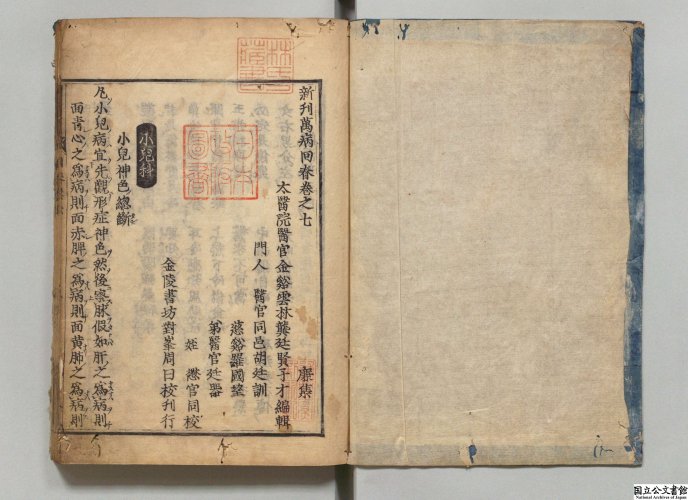 新刊萬病回春卷之七
太醫院醫官金谿雲林龔廷賢子才編輯
門人 醫官同邑胡廷訓
慈谿羅國望
第醫官廷器
姪 懋官同校
金陵書坊對峯周曰校刊行
小兒科
小兒神色總斷
凡小兒病宜先觀形症神色然後察脉假如肝之爲病則
面青心之爲病則面赤脾之爲病則面黄肺之爲病則
林氏藏書
日本政府圖書
国立公文書館
National Archives of Japan